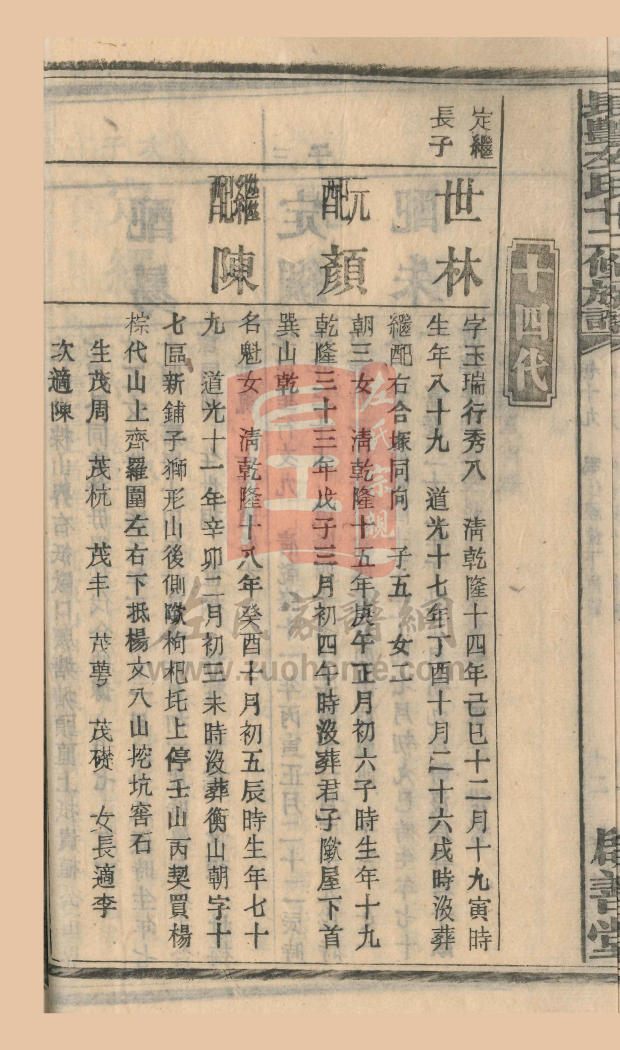 長豐左氏十二修族譜
啟善堂
十四代
定繼
長子
世林
字玉瑞行秀八　淸乾隆十四年己巳十二月十九寅時
生年八十九　道光十七年丁酉十月二十六戌時沒葬
繼配右合塚同向　子五　女二
元配顏
朝三女　淸乾隆十五年庚午正月初六子時生年十九
乾隆三十三年戊子三月初四午時沒葬君子歟屋下首
巽山乾
繼配陳
名魁女　淸乾隆十八年癸酉十月初五辰時生年七十
九　道光十一年辛卯二月初三未時沒葬衡山朝字十
七區新鋪子獅形山後側歟枸杷圫上停壬山丙契買楊
棕代山上齊羅圍左右下抵楊文八山挖坑窖石
生茂周　茂杭　茂丰　茂蕚　茂礎　女長適李
次適陳
左氏宗親
左氏家譜網
www.zuohome.com